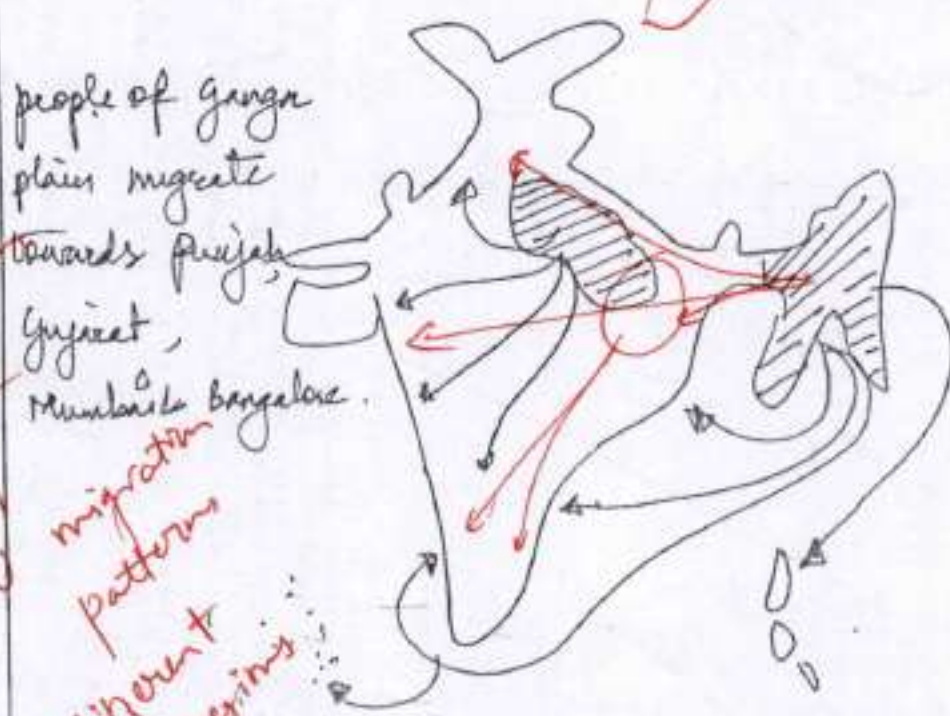 people of Ganga
plain migrate
towards Punjab,
Gujarat,
Mumbai & Bangalore.
migration
patterns